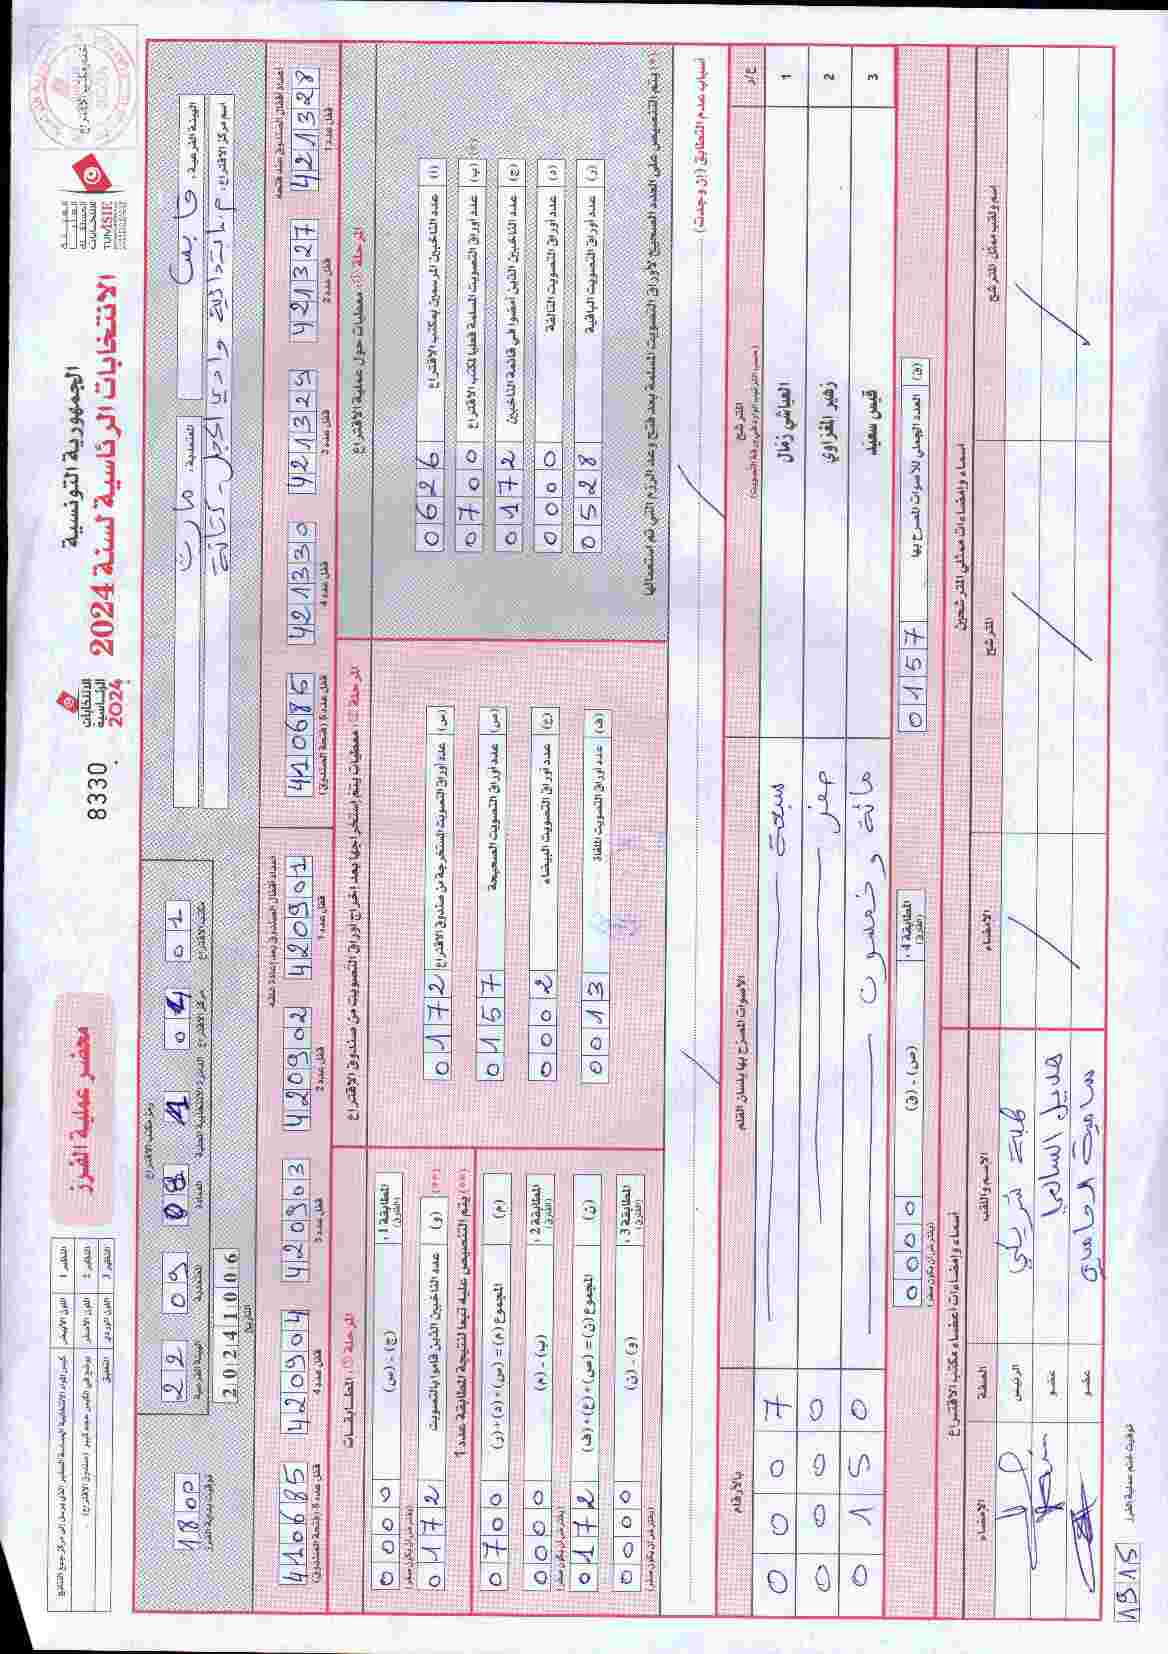 الجمهورية التونسية
الانتخابات الرئاسية لسنة 2024
الهيئة العليا المستقلة للانتخابات
TUNISIE
ختم مكتب الاقتراع
الانتخابات الرئاسية 2024
8330
محضر عملية الفرز
النظير 1 اللون الأبيض
النظير 2 اللون الأصفر
النظير 3 اللون الوردي
الهيئة الفرعية: قابس
المعتمدية: مارث
اسم مركز الاقتراع: م.ابتدائية وادي الجل - كتانة
رمز مكتب الاقتراع
الهيئة الفرعية 22
المعتمدية 09
العمادة 08
الدائرة الانتخابية المحلية 1
مركز الاقتراع 04
مكتب الاقتراع 01
التاريخ 20241006
توقيت بداية الفرز 1800
أعداد أقفال الصندوق عند فتحه
421328 قفل عدد 1
421327 قفل عدد 2
421329 قفل عدد 3
421330 قفل عدد 4
410685 قفل عدد 5 (فتحة الصندوق)
أعداد أقفال الصندوق بعد إعادة غلقه
420901 قفل عدد 1
420902 قفل عدد 2
420903 قفل عدد 3
420904 قفل عدد 4
410685 قفل عدد 5 (فتحة الصندوق)
المرحلة (1): معطيات حول عملية الاقتراع
(أ) عدد الناخبين المرسمين بمكتب الاقتراع 0626
(ب) عدد أوراق التصويت المسلمة فعليا لمكتب الاقتراع (*) 0700
(ج) عدد الناخبين الذين أمضوا في قائمة الناخبين 0172
(د) عدد أوراق التصويت التالفة 0000
(ر) عدد أوراق التصويت الباقية 0528
(*) يتم التنصيص على العدد الصحيح لأوراق التصويت المسلمة بعد فتح وعد الرزم التي تم استعمالها
المرحلة (2): معطيات يتم استخراجها بعد إخراج أوراق التصويت من صندوق الاقتراع
(س) عدد أوراق التصويت المستخرجة من صندوق الاقتراع 0172
(ص) عدد أوراق التصويت الصحيحة 0157
(ع) عدد أوراق التصويت البيضاء 0002
(ف) عدد أوراق التصويت الملغاة 0013
المرحلة (3): المطابقات
المطابقة 1: (الفارق) (ج) - (س) 0000
(يفترض أن يكون صفر)
(و) عدد الناخبين الذين قاموا بالتصويت (**) 0172
(**) يتم التنصيص عليه تبعا لنتيجة المطابقة عدد 1
(م) المجموع (م) = (س) + (د) + (ر) 0700
المطابقة 2: (الفارق) (ب) - (م) 0000
(يفترض أن يكون صفر)
(ن) المجموع (ن) = (ص) + (ع) + (ف) 0172
المطابقة 3: (الفارق) (و) - (ن) 0000
(يفترض أن يكون صفر)
أسباب عدم التطابق (إن وجدت)
ع/ر
المترشح
(حسب الترتيب الوارد في ورقة التصويت)
الأصوات المصرح بها بلسان القلم
بالأرقام
1 العياشي زمال سبعة 0007
2 زهير المغزاوي صفر 0000
3 قيس سعيد مائة وخمسون 0150
(ق) العدد الجملي للأصوات المصرح بها 0157
المطابقة 4: (الفارق) (ص) - (ق) 0000
(يفترض أن يكون صفر)
أسماء وإمضاءات ممثلي المترشحين
اسم ولقب ممثل المترشح
المترشح
الإمضاء
أسماء وإمضاءات أعضاء مكتب الاقتراع
الاسم واللقب
الصفة
الإمضاء
الرئيس
هديل السالمي عضو
عضو
توقيت ختم عملية الفرز 1915